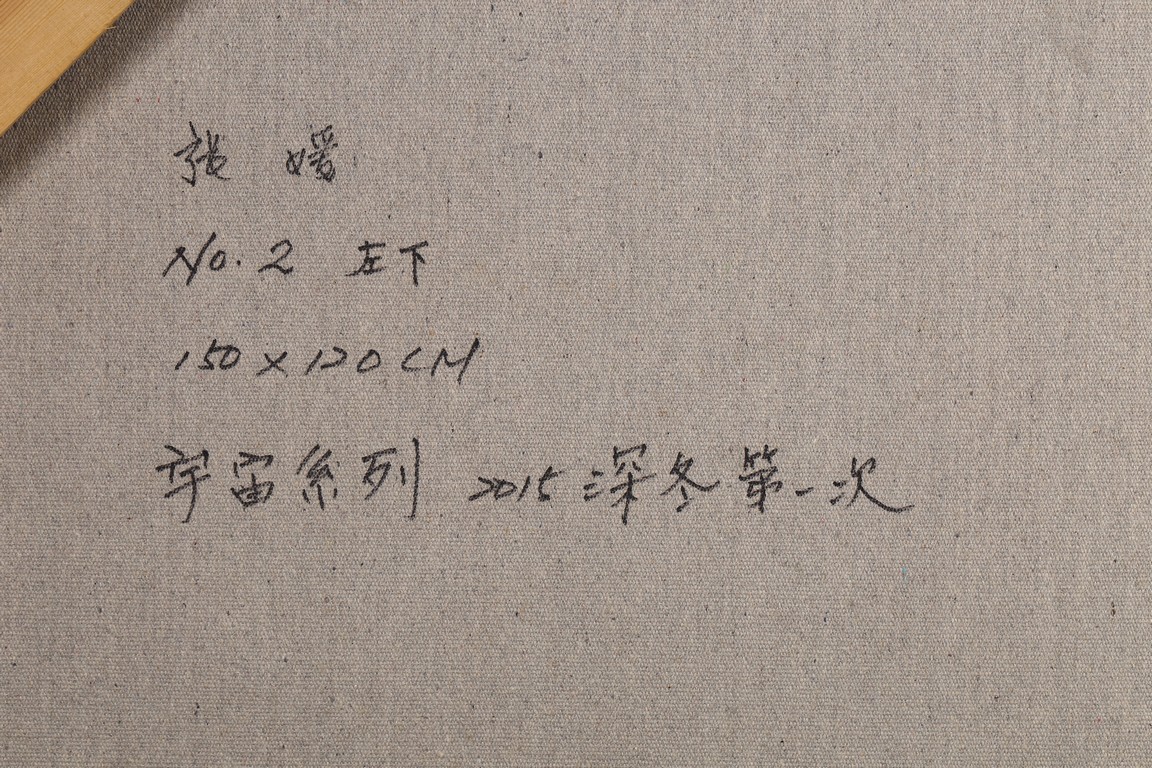 張 媛
No. 2 左下
150 x 120 CM
宇宙系列 2015 深冬第一次